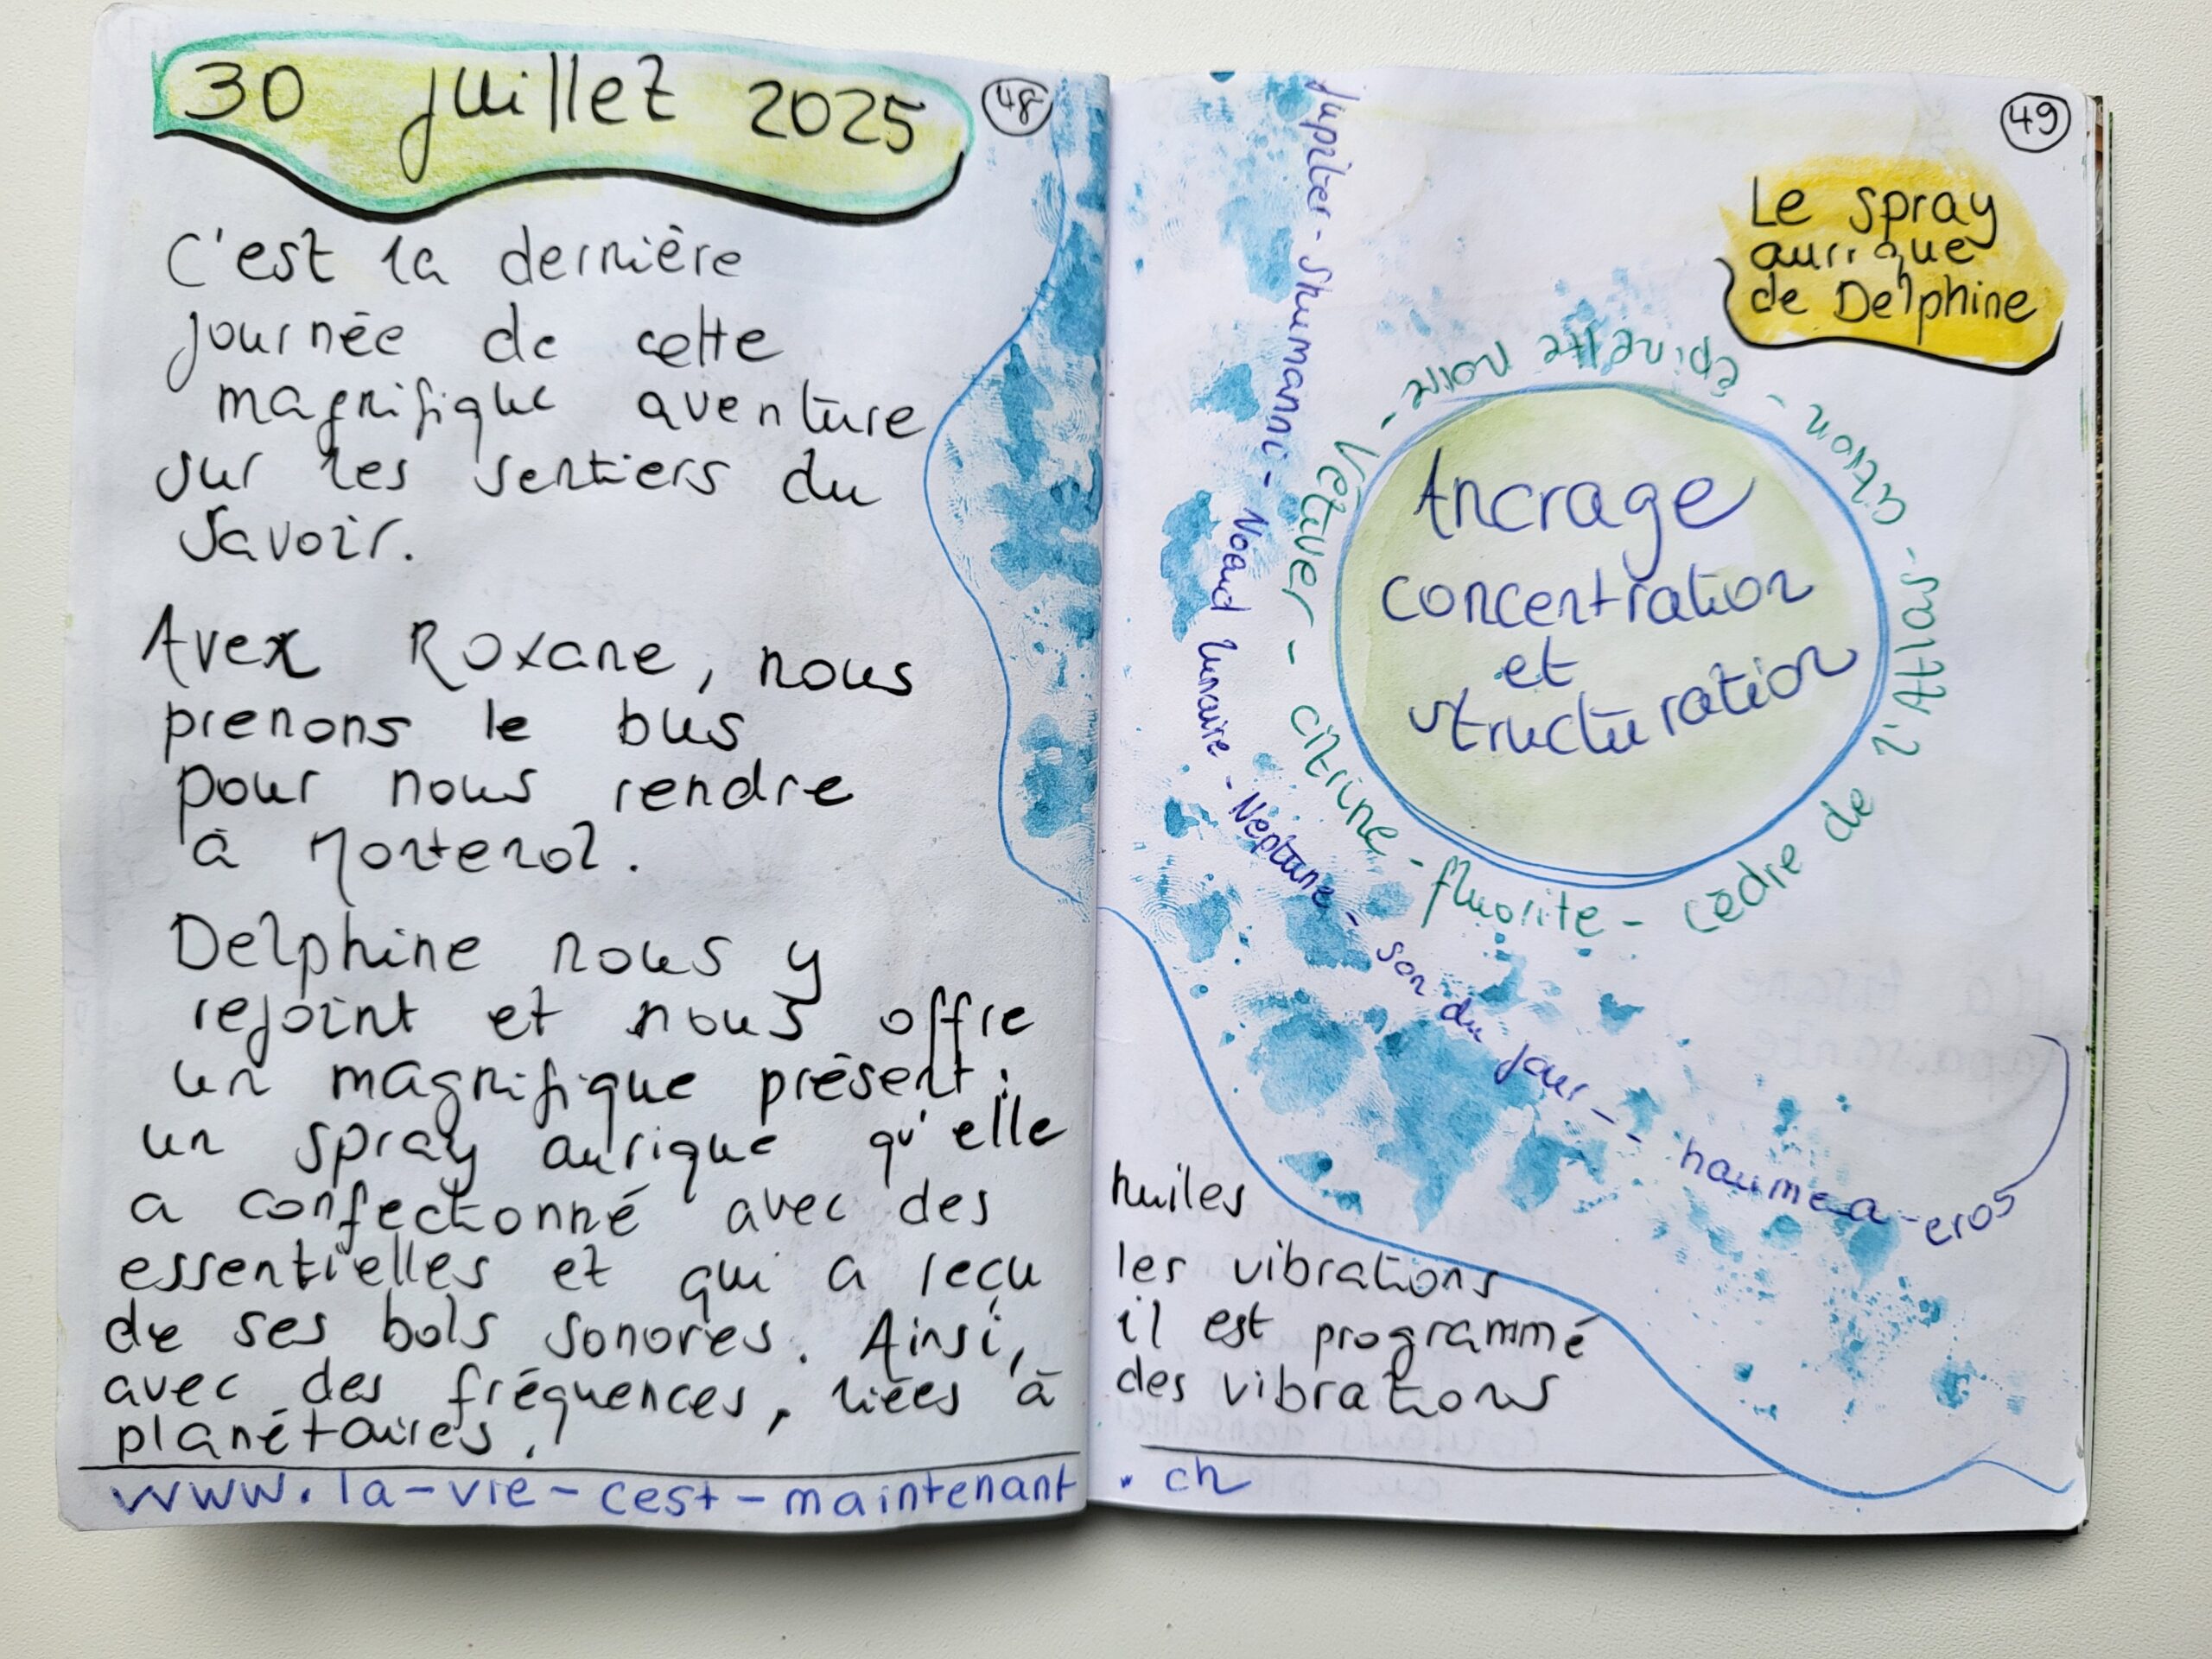 30 juillet 2025
48
C'est la dernière
journée de cette
magnifique aventure
sur les sentiers du
savoir.
Avex Roxane, nous
prenons le bus
pour nous rendre
à
Delphine nous y
rejoint et nous offre
un magnifique présent :
un spray aurique qu'elle
a confectionné avec des huiles
essentielles et qui a reçu les vibrations
de ses bols sonores. Ainsi, il est programmé
avec des fréquences, liées à des vibrations
planétaires.
www.la-vie-cest-maintenant.ch
49
Le spray
aurique
de Delphine
Ancrage
concentration
et
structuration
Vétiver - citrine - fluorite - cèdre de l'Atlas - citron - épinette noire -
Jupiter - Shumanni - Noeud lunaire - Neptune - son du jour -- haumea - eros